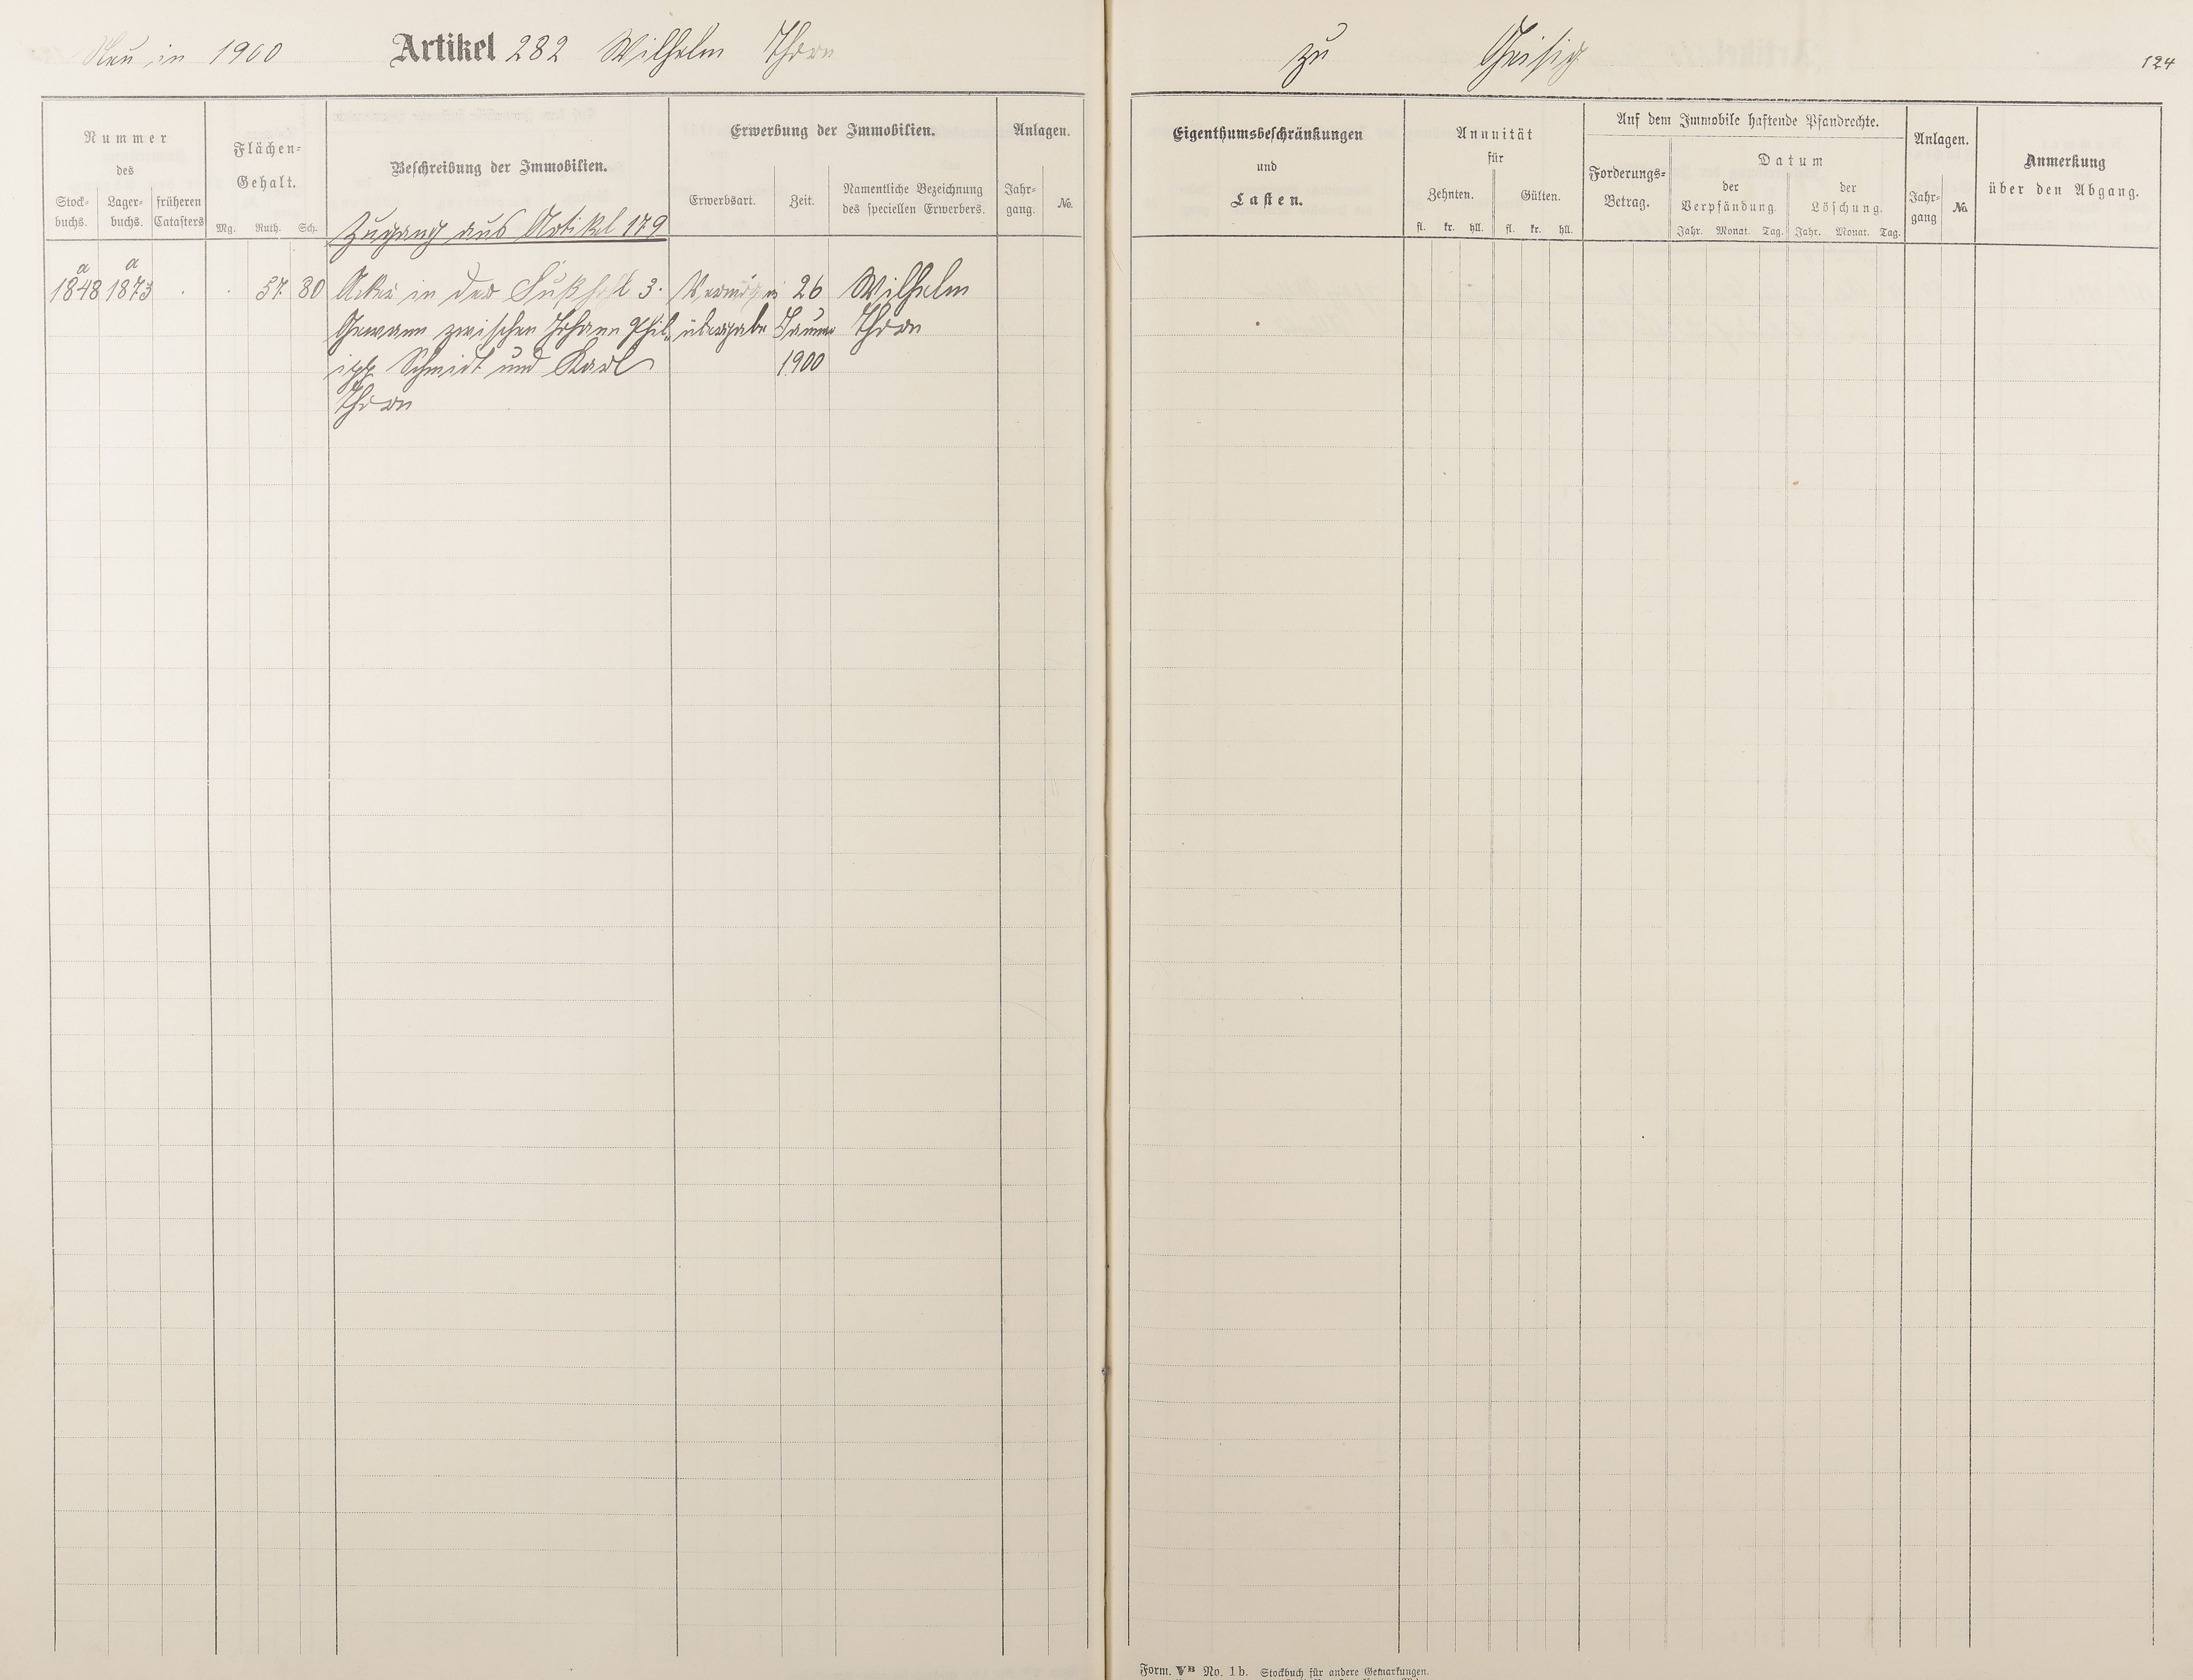 Neu in 1900 Artikel 282 Wilhelm Thorn
zu Geisig 124
Nummer
des
Stock-
buchs.
Lager-
buchs.
früheren
Catasters
Flächen-
Gehalt.
Mg. Ruth. Sch.
Beschreibung der Immobilien.
Erwerbung der Immobilien.
Erwerbsart. Zeit.
Namentliche Bezeichnung
des speciellen Erwerbers.
Anlagen.
Jahr-
gang.
No.
Zugang aus Artikel 179
a a
1848 1873 . . 57 80 Acker in der 3. Vermögens 26 Wilhelm
Gewann zwischen Johann Phil„ übergabe Januar Thorn
ipp Schmidt und Karl 1900
Thorn
Eigenthumsbeschränkungen
und
Lasten.
Annuität
für
Zehnten. Gülten.
fl. kr. hll. fl. kr. hll.
Auf dem Immobile haftende Pfandrechte.
Forderungs-
Betrag.
Datum
der
Verpfändung.
Jahr. Monat. Tag.
der
Löschung.
Jahr. Monat. Tag.
Anlagen.
Jahr-
gang
No.
Anmerkung
über den Abgang.
Form. VB No. 1b. Stockbuch für andere Gemarkungen.